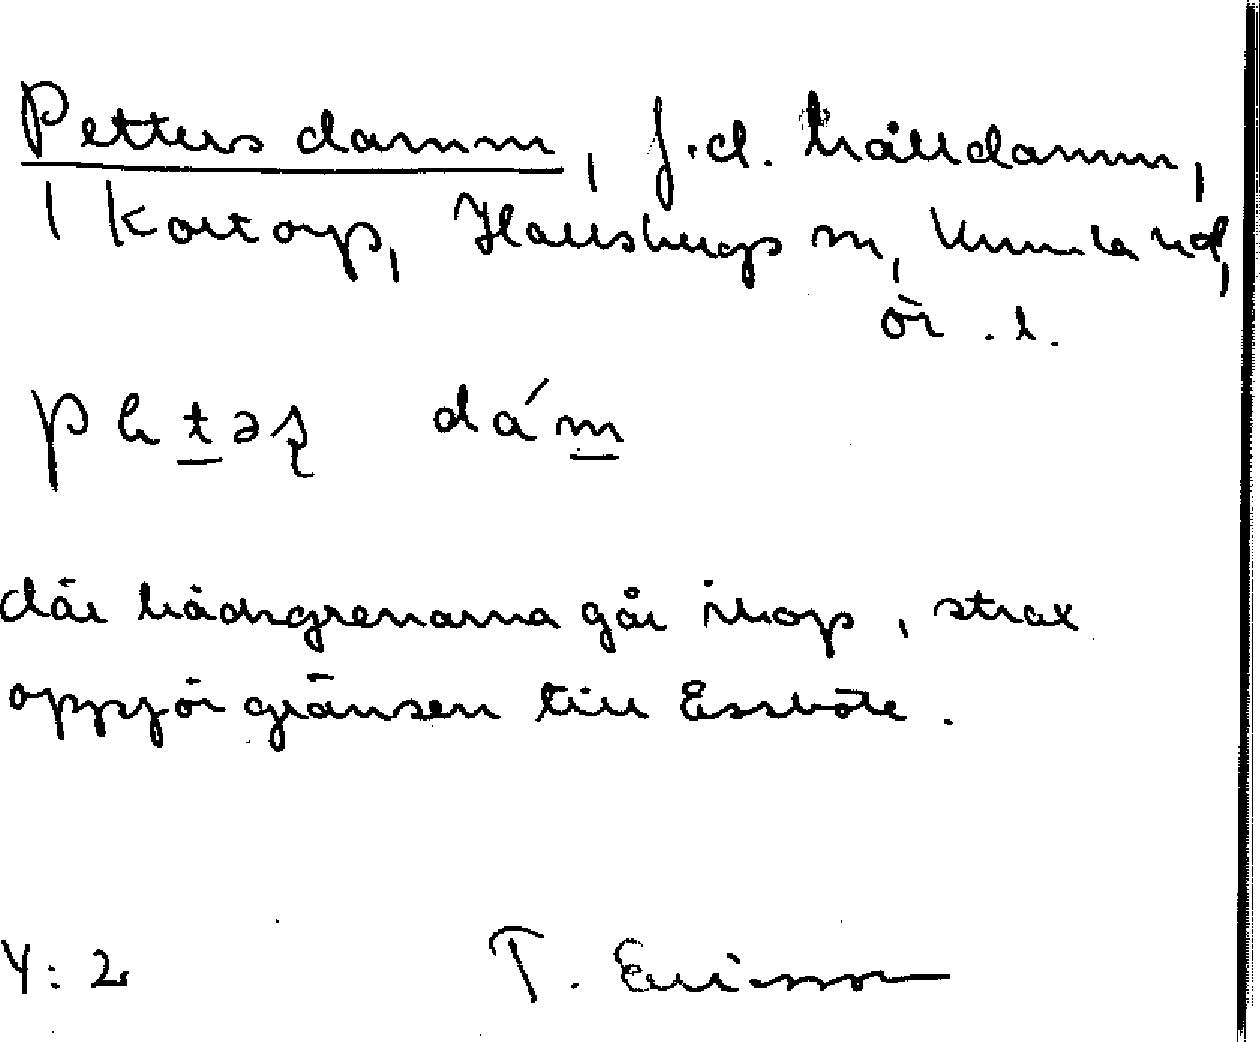 Petters damm, f.d. kvälldamm,
| Kortorp, Hallsbergs sn, Kumla hd,
ör. l.
dá´m
där bäckgrenarna går ihop, strax
uppför gränsen till Esslöte.
4:2 T. Ericsson